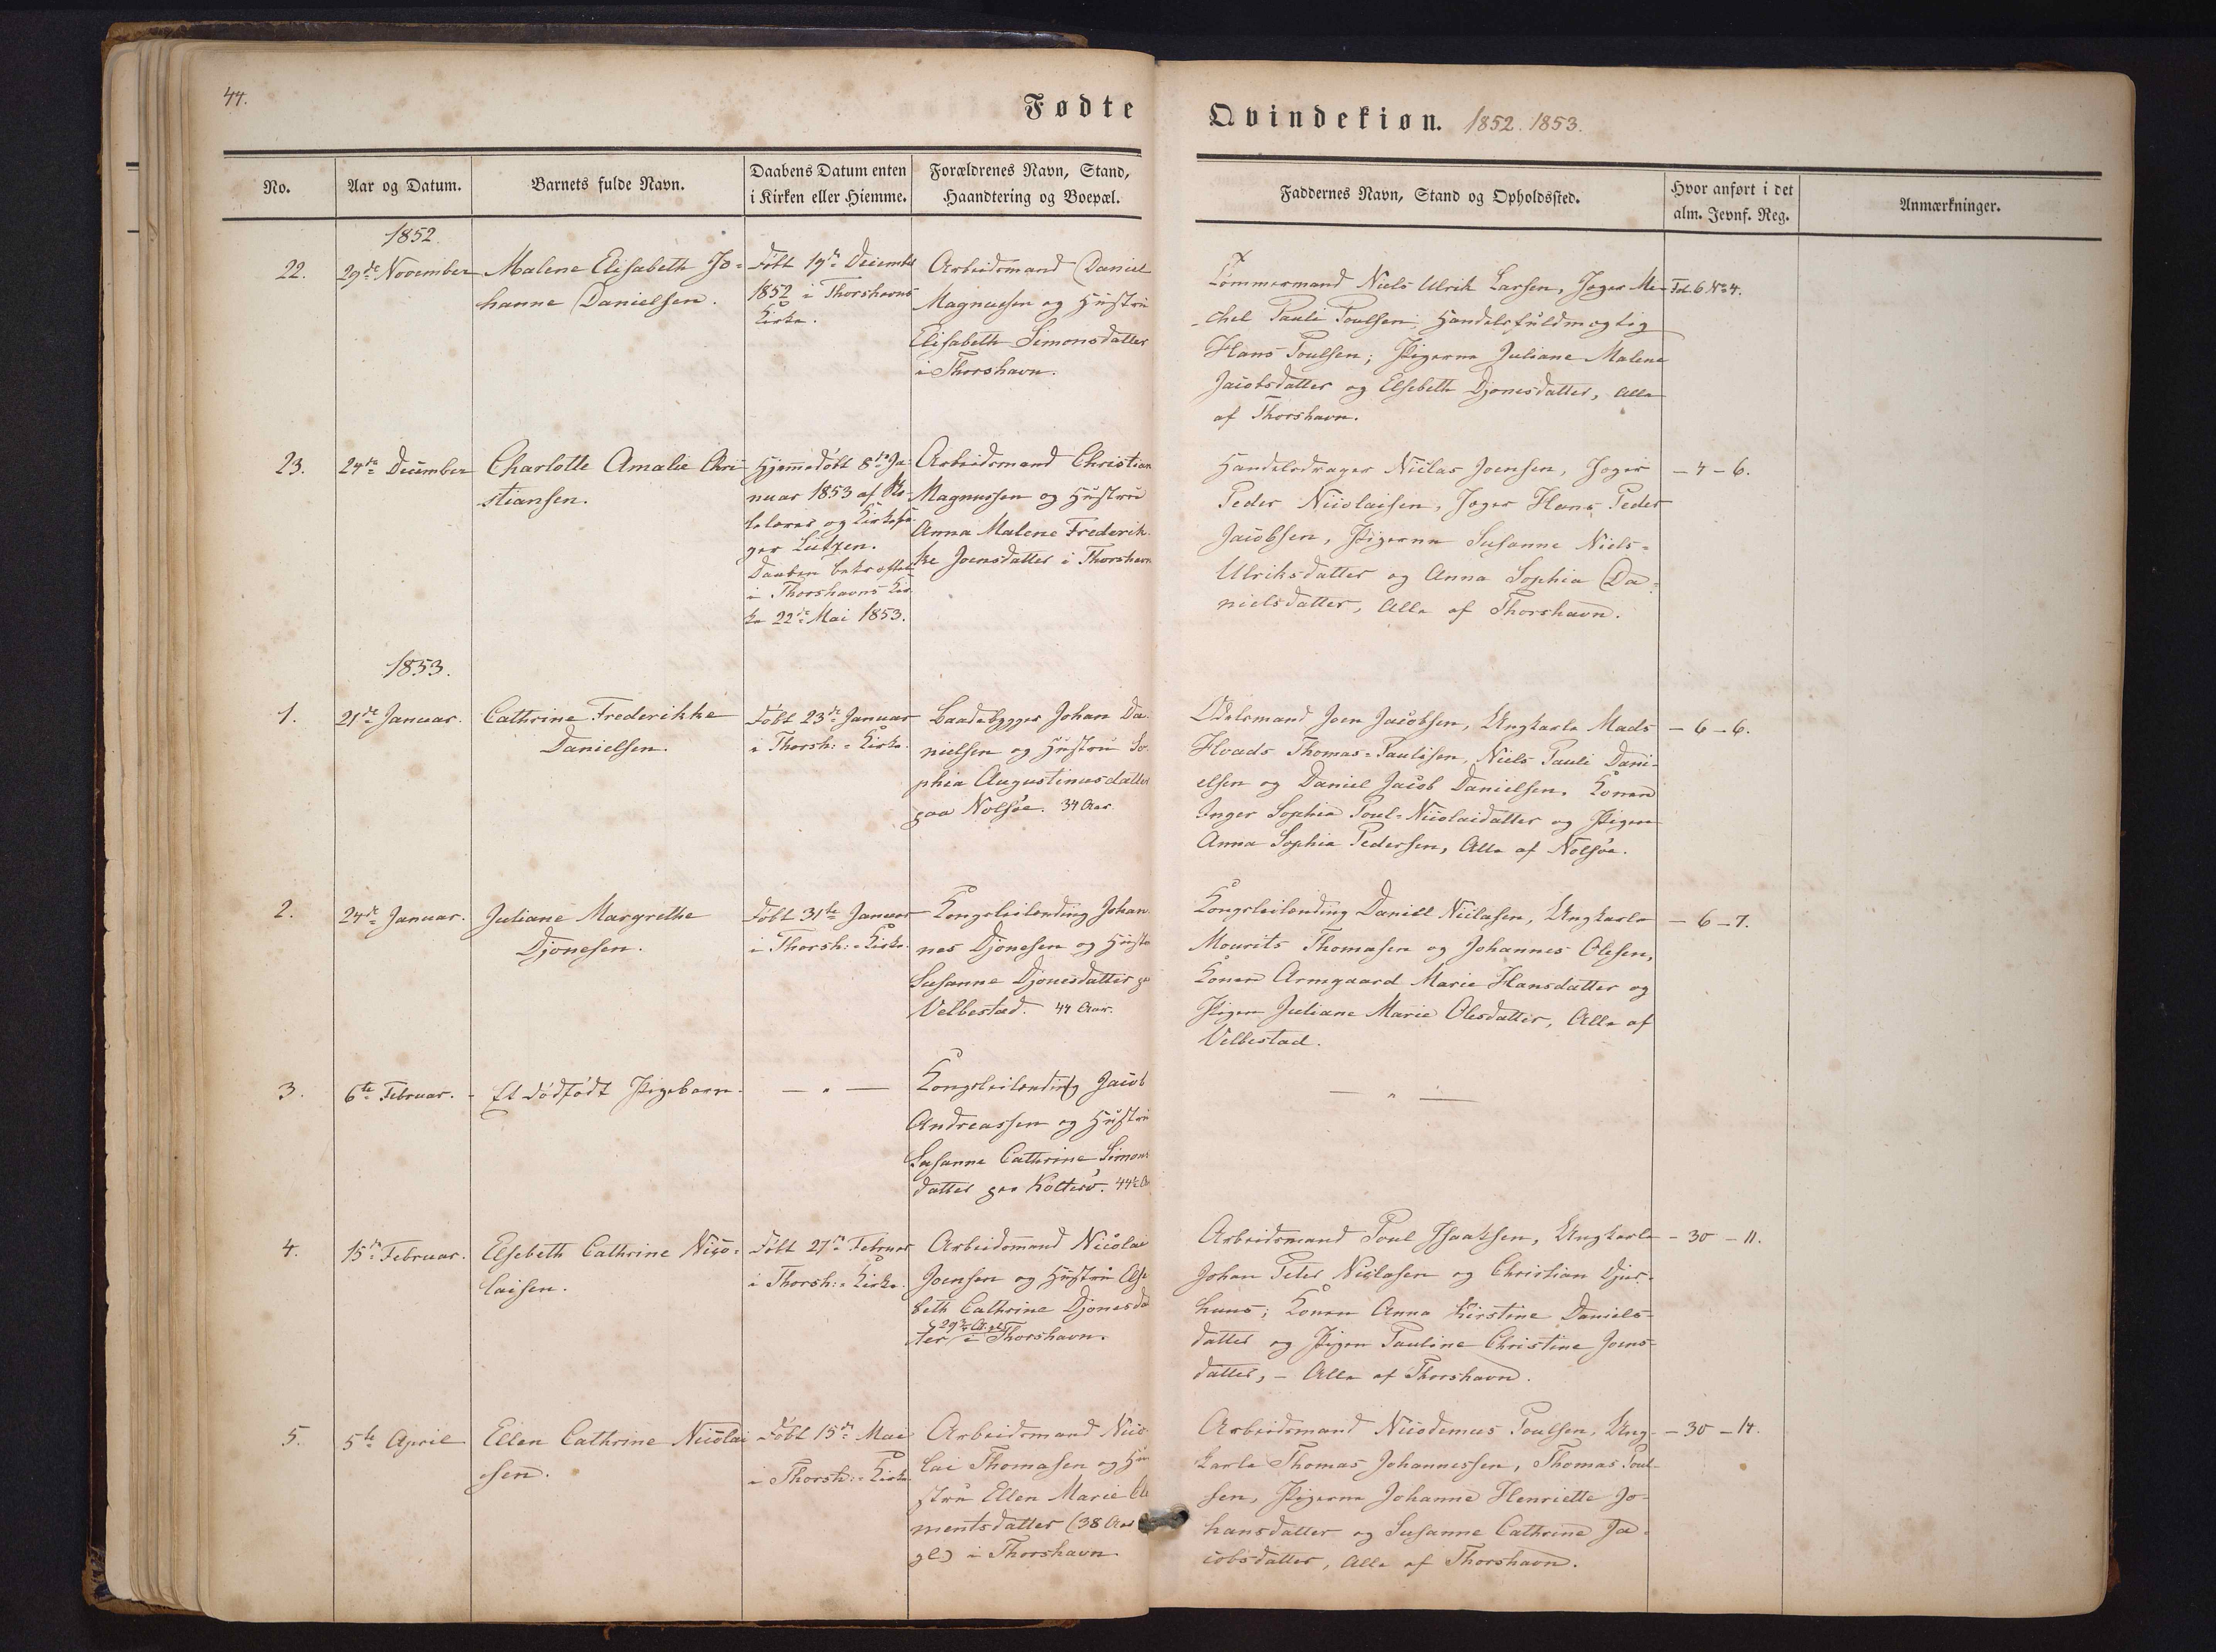 44.
Fødte
Qvindekiøn. 1852. 1853.
No.
Aar og Datum.
Barnets fulde Navn.
Daabens Datum enten
i Kirken eller Hiemme.
Forældrenes Navn, Stand,
Haandtering og Boepæl.
Faddernes Navn, Stand og Opholdssted.
Hvor anført i det
alm. Jevnf. Reg.
Anmærkninger.
1852.
22.
29de November
Malene Elisabeth Jo-
hanne Danielsen.
Døbt 19de Decembr
1852 i Thorshavns
Kirke.
Arbeidsmand Daniel
Magnussen og Hustru
Elisabeth Simonsdatter
i Thorshavn.
Tømmermand Niels Ulrik Larsen, Joger Mi-
chel Pauli Poulsen, Handelsfuldmægtig
Hans Poulsen; Pigerne Juliane Malene
Jacobsdatter og Elsebeth Djonesdatter, Alle
af Thorshavn.
Fol. 6 No 4.
23.
24de December
Charlotte Amalie Chri-
stiansen.
Hjemmedøbt 8de Ja-
nuar 1853 af
og Kirkesan-
ger Lützen.
Daaben bekræftet
i Thorshavns Kir-
ke 22de Mai 1853.
Arbeidsmand Christian
Magnussen og Hustrue
Anna Malene Frederik-
ke Joensdatter i Thorshavn
Handelsdrager Niclas Joensen, Joger
Peder Nicolaisen, Joger Hans Peder
Jacobsen, Pigerne Susanne Niels-
Ulriksdatter og Anna Sophia Da-
nielsdatter, Alle af Thorshavn.
- 4 - 6.
1853.
1.
21de Januar.
Cathrine Frederikke
Danielsen.
Døbt 23de Januar
i Thorsh: Kirke.
Baadebygger Johan Da-
nielsen og Hustru So-
phia Augustinusdatter
paa Nolsøe. 34 Aar.
Odelsmand Joen Jacobsen, Ungkarle Mads
Thomas-Paulisen, Niels Pauli Dani-
elsen og Daniel Jacob Danielsen. Konen
Inger Sophie Poul-Nicolaidatter og Pigen
Anna Sophie Pedersen, Alle af Nolsøe.
- 6 - 6.
2.
24de Januar.
Juliane Margrethe
Djonesen.
Døbt 31te Januar
i Thorsh: Kirke.
Kongsleilending Johan-
nes Djonesen og Hustru
Susanne Djonesdatter
Velbestad. 44 Aar.
Kongsleilending Daniel Niclasen, Ungkarle
Mourits Thomasen og Johannes Olesen,
Konen Armgaard Marie Hansdatter og
Pigen Juliane Marie Olesdatter, Alle af
Velbestad.
- 6 - 7.
3.
6te Februar.
Et dødfødt Pigebarn.
— " —
Kongsleilending Jacob
Andreassen og Hustru
Susanne Cathrine Simons
datter paa Kolter.
— " —
4.
15de Februar.
Elsebeth Cathrine Nico-
laisen.
Døbt 27de Februar
i Thorsh: Kirke.
Arbeidsmand Nicolai
Joensen og Hustru Else-
beth Cathrine Djonesdat
ter i Thorshavn.
Arbeidsmand Poul Isaaksen, Ungkarle
Johan Peter Niclasen og Christian Djur-
huus; Konen Anna Kirstine Daniels-
datter og Pigen Pauline Christine Joens-
datter, - Alle af Thorshavn.
- 30 - 11.
5.
5te April
Ellen Cathrine Nicolai
sen.
Døbt 15de Mai
i Thorsh: Kirke
Arbeidsmand Nico-
lai Thomasen og Hu-
stru Ellen Marie Cle
mentsdatter (38 Aar
gl) i Thorshavn.
Arbeidsmand Nicodemus Poulsen, Ung-
karle Thomas Johannessen, Thomas Poul-
sen, Pigerne Johanne Henriette Jo-
hansdatter og Susanne Cathrine Ja-
cobsdatter, Alle af Thorshavn.
- 30 - 14.